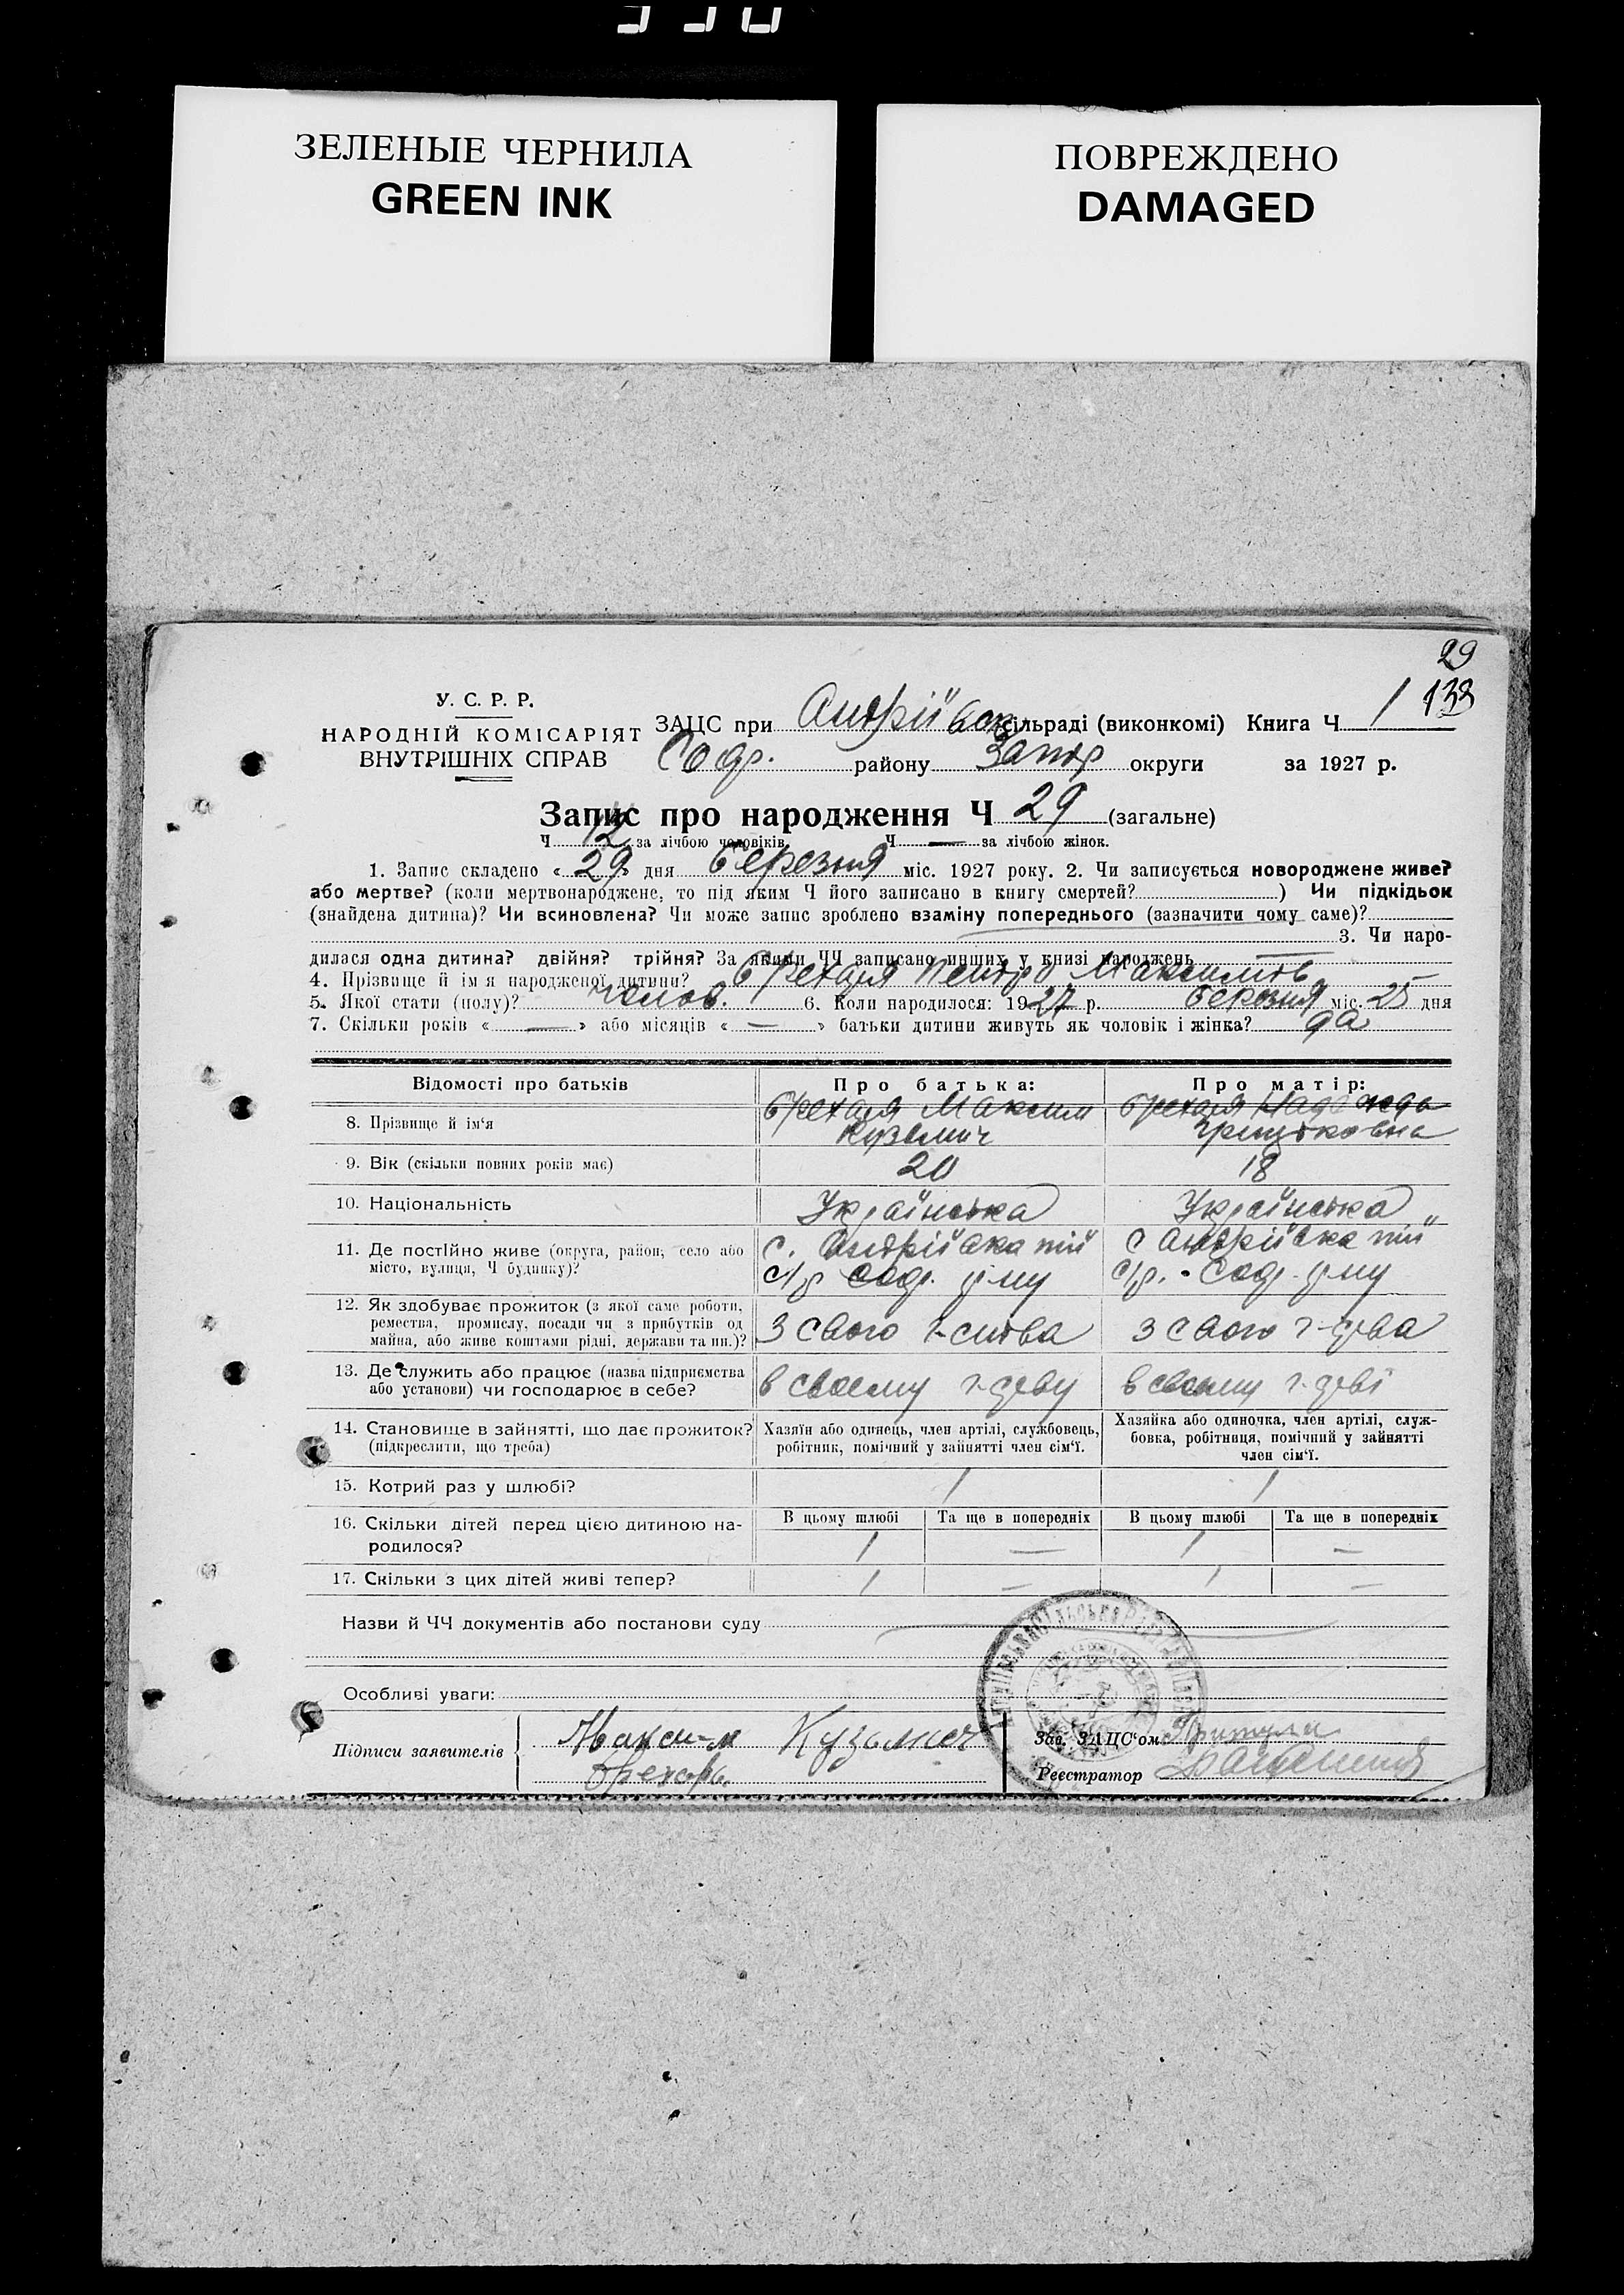 ЗЕЛЕНЫЕ ЧЕРНИЛА
GREEN INK
ПОВРЕЖДЕНО
DAMAGED
29
133
У. С. Р. Р.
НАРОДНІЙ КОМІСАРІЯТ
ВНУТРІШНІХ СПРАВ
ЗАЦС при Андрійвск сільраді (виконкомі) Книга Ч 1
Софр. району Запор округи за 1927 р.
Запис про народження Ч 29 (загальне)
Ч 12 за лічбою чоловіків Ч — за лічбою жінок.
1. Запис складено « 29 » дня березня міс. 1927 року. 2. Чи записується новороджене живе?
або мертве? (коли мертвонароджене, то під яким Ч його записано в книгу смертей? ) Чи підкідьок
(знайдена дитина)? Чи всиновлена? Чи може запис зроблено взаміну попереднього (зазначити чому саме)?
3. Чи наро-
дилася одна дитина? двійня? трійня? За якими ЧЧ записано инших у книзі народжень —
4. Прізвище й ім'я народженої дитини? Петро Максимов
5. Якої стати (полу)? чолов. 6. Коли народилося: 1927 р. березня міс. 25 дня
7. Скільки років « — » або місяців « — » батьки дитини живуть як чоловік і жінка? да
Відомості про батьків
Про батька:
Про матір:
8. Прізвище й ім'я
Максим
Кузьмич
Надежда
Грицьковна
9. Вік (скільки повних років має)
20
18
10. Національність
Українська
Українська
11. Де постійно живе (округа, район, село або
місто, вулиця, Ч будинку)?
с. Андрійвка тій
с/р Соф. р-ну
с Андрійвка тій
с/р. Соф. р-ну
12. Як здобуває прожиток (з якої саме роботи,
ремества, промислу, посади чи з прибутків од
майна, або живе коштами рідні, держави та ин.)?
З свого г-ства
З свого г-дєва
13. Де служить або працює (назва підприємства
або установи) чи господарює в себе?
в своєму г-дєву
в своєму г-дєві
14. Становище в зайнятті, що дає прожиток?
(підкреслити, що треба)
Хазяїн або одинець, член артілі, службовець,
робітник, помічний у зайнятті член сім'ї.
Хазяйка або одиночка, член артілі, служ-
бовка, робітниця, помічний у зайнятті
член сім'ї.
15. Котрий раз у шлюбі?
1
1
16. Скільки дітей перед цією дитиною на-
родилося?
В цьому шлюбі
Та ще в попередніх
В цьому шлюбі
Та ще в попередніх
1 — 1 —
17. Скільки з цих дітей живі тепер?
1 — 1 —
Назви й ЧЧ документів або постанови суду
Особливі уваги:
Підписи заявителів
Максим Кузьмич
Зав. ЗАЦС'ом Притула
Реєстратор